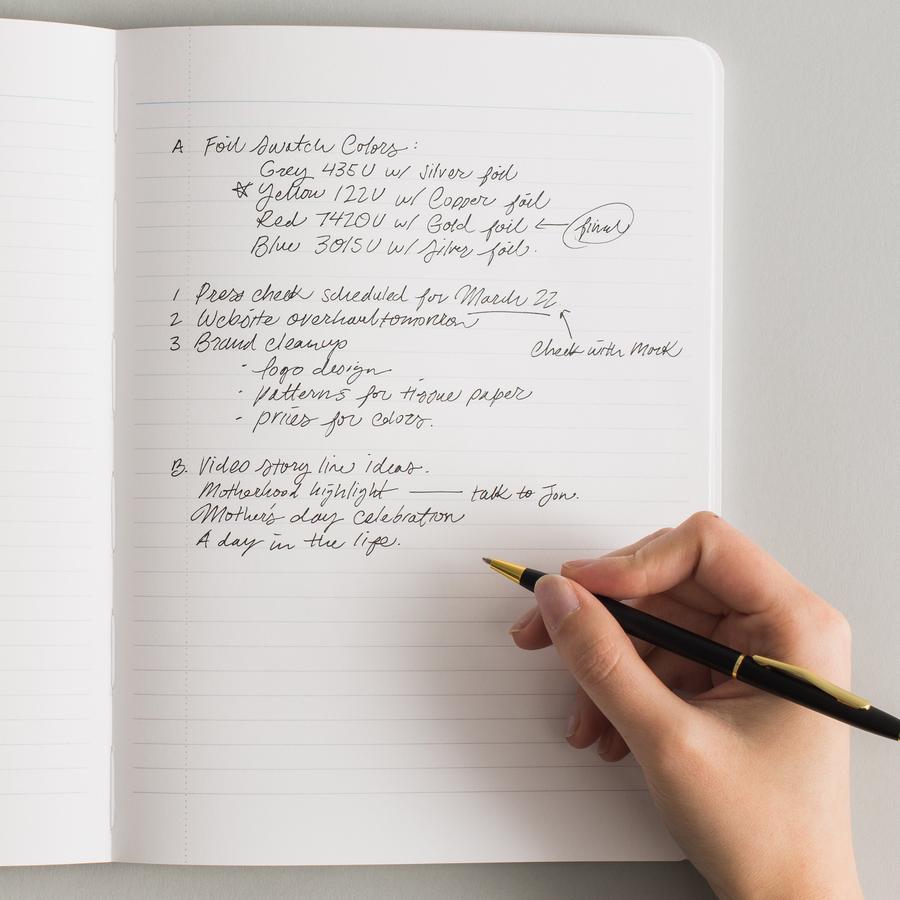 A Foil Swatch Colors:
Grey 435U w/ silver foil
☆ Yellow 122U w/ Copper foil
Red 7420U w/ Gold foil ← final
Blue 3015U w/ silver foil.
1 Press check scheduled for March 22
2 Website overhaul tomorrow
3 Brand cleanup
Check with Mark
- logo design
- patterns for tissue paper
- prices for colors.
B. Video story line ideas.
Motherhood highlight — talk to Jon.
Mother's day celebration
A day in the life.